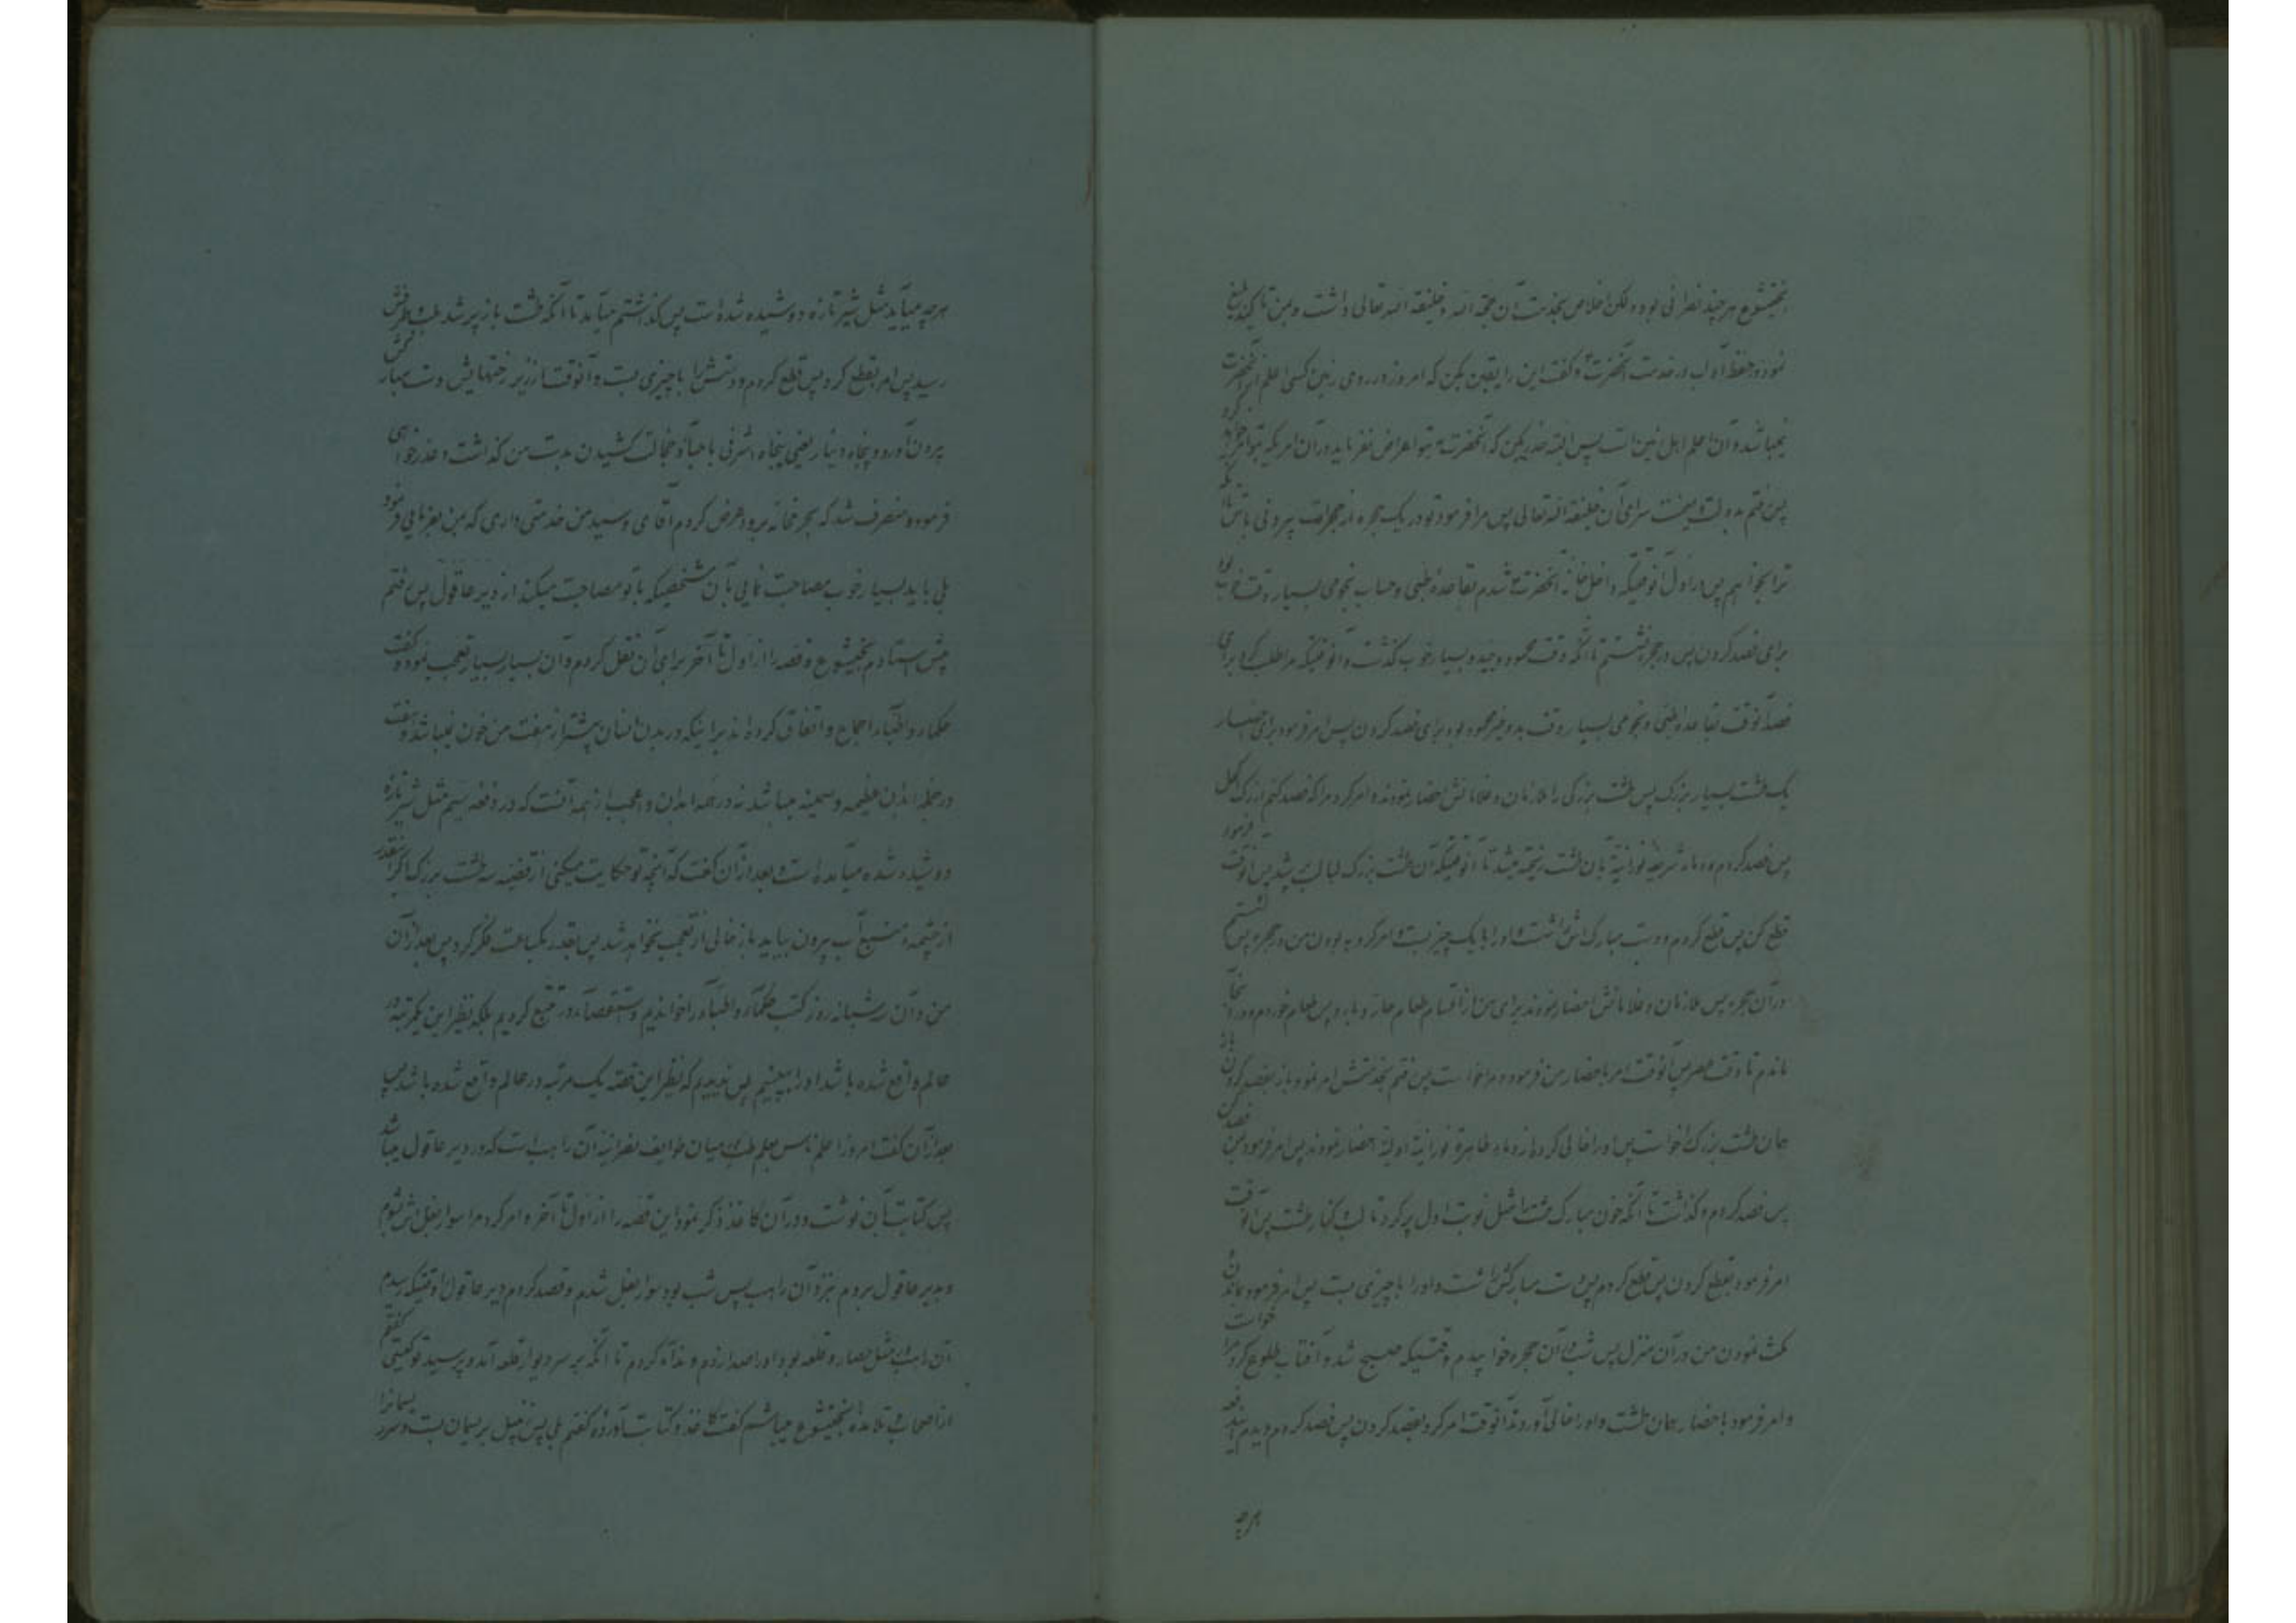 بختیشوع هر چند نصرانی بود ولکن اخلاص بخدمت آن حجة الله و خلیفة الله تعالی داشت و بمن تاکید بلیغ
نمود و حفظ آداب در خدمت آنحضرت و گفت این را یقین بکن که امروز در روی زمین کسی اعلم از آنحضرت
نمیباشد و آن اعلم اهل زمین است پس البته حذر بکن که بآنحضرت اعراض نفرماید در آن امریکه بتو امر
پس رفتم بدولت سرای آن خلیفة الله تعالی پس مرا فرمود تو در یک حجره از حجرات بیرونی باش تا
ترا بخواهم پس در اول آنوقتیکه داخل خانه آنحضرت شدم بقاعده طبی و حساب نجومی بسیار وقت خوب بود
برای فصد کردن پس در حجره نشستم تا آنکه وقت محمود و جید و بسیار خوب گذشت و آنوقتیکه مرا طلب کرد برای
فصد آنوقت بقاعده طبی و نجومی بسیار وقت بد و غیر محمود بود برای فصد کردن پس امر فرمود برای احضار
یک طشت بسیار بزرک پس طشت بزرگی را ملازمان و غلامانش احضار نمودند و امر کرد مرا که فصد کنم از رک اکحل
پس فصد کردم و دماء شریفه نورانیة بآن طشت ریخته میشد تا آنوقتیکه آن طشت بزرک لبالب شد پس آنوقت فرمود
قطع کن پس قطع کردم و دست مبارک اش را شست و او را با یک چیز بست و امر کرد به بودن من در حجره پس نشستم
در آن حجره پس ملازمان و غلامانش احضار نمودند برای من از اقسام طعام حار و بارد پس طعام خوردم و در آنجا
ماندم تا وقت عصر پس آنوقت امر باحضار من فرمود و مرا خواست پس رفتم بخدمتش امر نمود باز بفصد کردن
همان طشت بزرک را خواست پس او را خالی کرده از دماء طاهرة نورانیة اولیة احضار نمودند پس امر فرمود بمن فصد کن
پس فصد کردم و گذاشت تا آنکه خون مبارک طشت را مثل نوبت اول پر کرد تا لب کنار طشت پس آنوقت
امر فرمود بقطع کردن پس قطع کردم پس دست مبارکش را شست و او را با چیزی بست پس امر فرمود بماندن و
مکث نمودن من در آن منزل پس شب در آن حجره خوابیدم وقتیکه صبح شد و آفتاب طلوع کرد مرا خواست
و امر فرمود باحضار همان طشت و او را خالی آوردند آنوقت امر کرد بفصد کردن پس فصد کردم دیدم ایندفعه
هرچه
هرچه میآید مثل شیر تازه دوشیده شده است پس گذاشتم میآید تا آنکه طشت باز پر شد
رسید پس امر بقطع کرد پس قطع کردم و دستش را با چیزی بست و آنوقت از زیر رختهایش دست مبارکش
بیرون آورد و پنجاه دینار یعنی پنجاه اشرفی با حیا و خجالت کشیدن بدست من گذاشت و عذرخواهی
فرمود و منصرف شد که بحرمخانه برود عرض کردم آقای و سید من خدمتی داری که بمن بفرمایی فرمود
بلی باید بسیار خوب مصاحبت نمایی بآن شخصیکه با تو مصاحبت میکند از دیر عاقول پس رفتم
پیش استادم بختیشوع و قصه را از اول تا آخر برای آن نقل کردم و آن بسیار بسیار تعجب نمود و گفت
حکماء و اطباء اجماع و اتفاق کرده‌اند بر اینکه در بدن انسان بیشتر از هفت من خون نمیباشد و هفت
در جمله ابدان عظیمه و سمینه میباشد نه در همه ابدان و اعجب از همه آنست که در دفعه سیم مثل شیر تازه
دوشیده شده میآمده است و بعد از آن گفت که آنچه تو حکایت میکنی از قضیه سه طشت بزرک اگر اینقدر
از چشمه و منبع آب بیرون بیاید باز خالی از تعجب نخواهد شد پس بقدر یکساعت فکر کرد پس بعد از آن
من و آن سه شبانه روز کتب حکماء و اطباء را خواندیم و استقصاء و تتبع کردیم بلکه نظیر این یکمرتبه در
عالم واقع شده باشد او را ببینیم پس ندیدیم که نظیر این قصه یک مرتبه در عالم واقع شده باشد پس
بعد از آن گفت امروز اعلم ناس بعلم طب در میان طوایف نصرانیة آن راهب است که در دیر عاقول میباشد
پس کتابت بآن نوشت و در آن کاغذ ذکر نمود این قصه را از اول تا آخر و امر کرد مرا سوار بغل اش شوم
و بدیر عاقول بروم بنزد آن راهب پس شب بود سوار بغل شدم و قصد کردم دیر عاقول را وقتیکه رسیدم
آن دیر مثل حصار و قلعه بود او را صدا زدم و نداء کردم تا آنکه بر سر دیوار قلعه آمد و پرسید تو کیستی گفتم
از اصحاب و تلامذه بختیشوع میباشم گفت کاغذ و کتابت آورده گفتم بلی پس زنبیل بریسمان بست و سر ریسمانرا